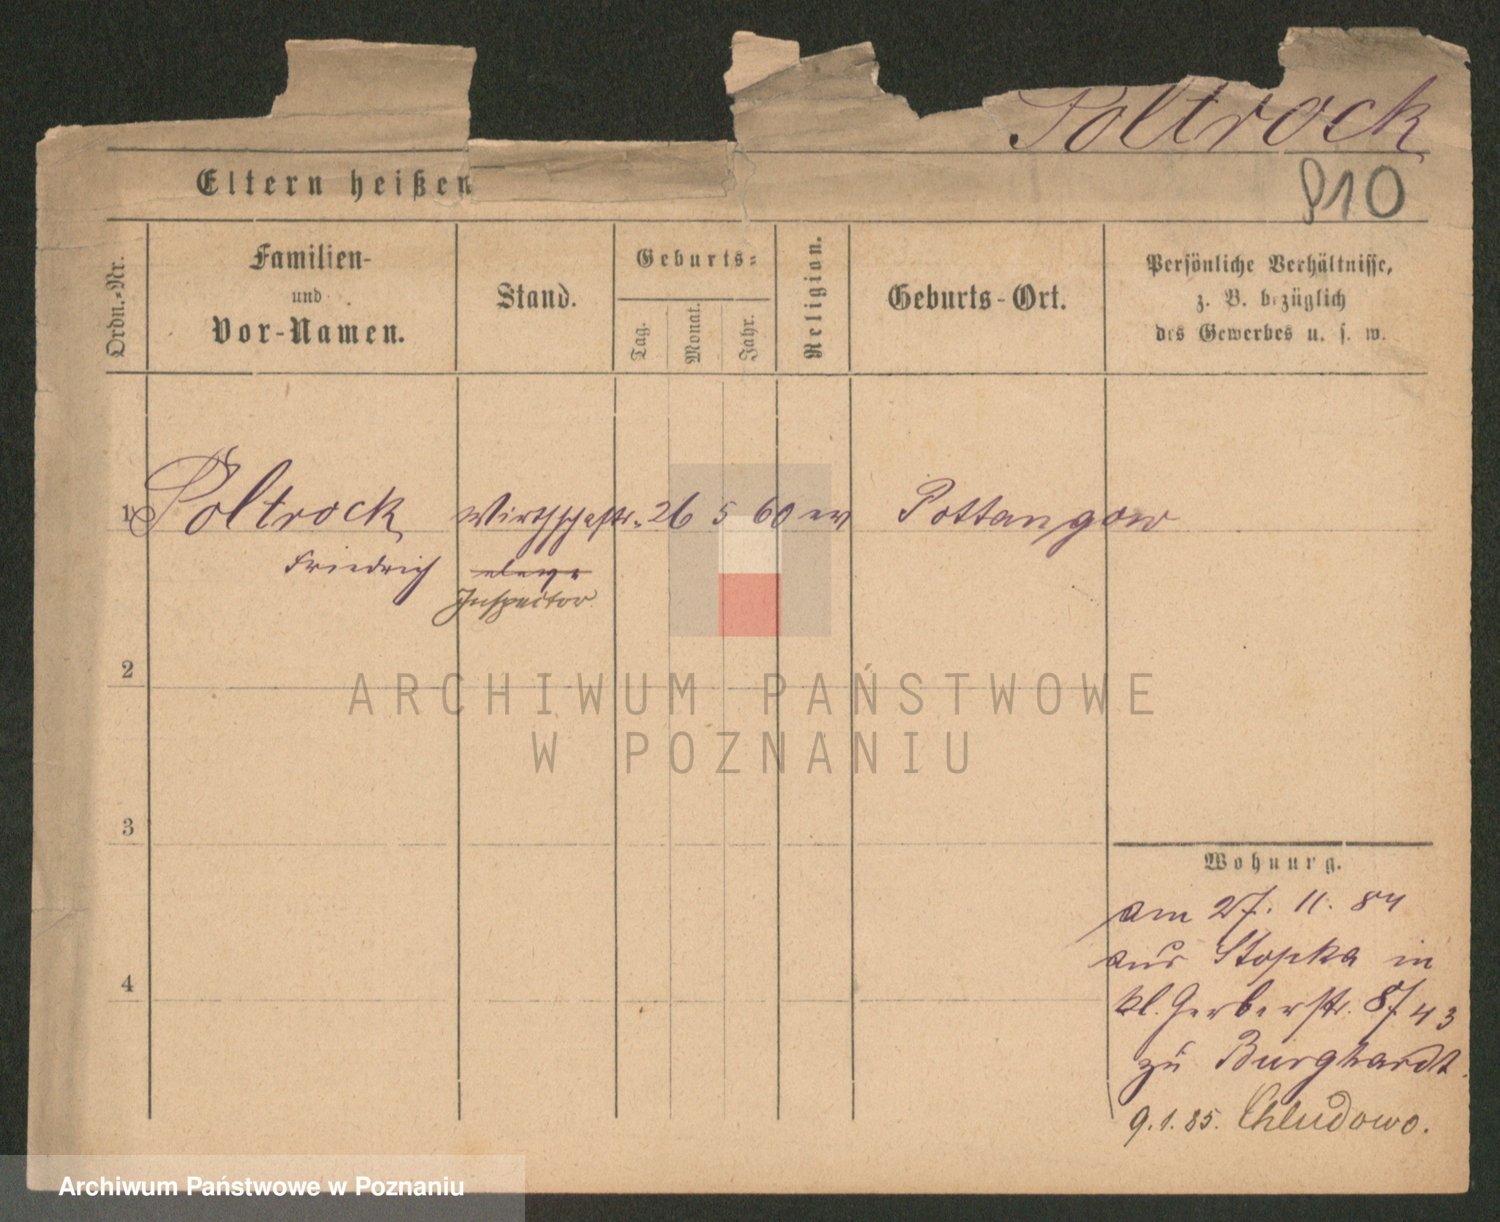 Poltrock
910
Eltern heißen
Ordn.-Nr.
Familien-
und
Vor-Namen.
Stand.
Geburts-
Tag.
Monat.
Jahr.
Religion.
Geburts-Ort.
Persönliche Verhältnisse,
z. B. bezüglich
des Gewerbes u. s. w.
1 Poltrock Wirthschafts- 26 5 60 ev Pottangow
Friedrich eleve
Inspector
2
3
4
Wohnung.
am 27. 11. 84
aus Slopka in
kl. Gerberstr. 8/43
zu Burghardt.
9.1.85. Chludowo.
ARCHIWUM PAŃSTWOWE
W POZNANIU
Archiwum Państwowe w Poznaniu